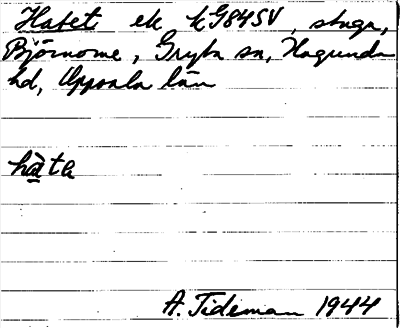 Hatet ek kG84SV, stuga,
Björnome, Gryta sn, Hagunda
hd, Uppsala län
hàta
A. Tideman 1944